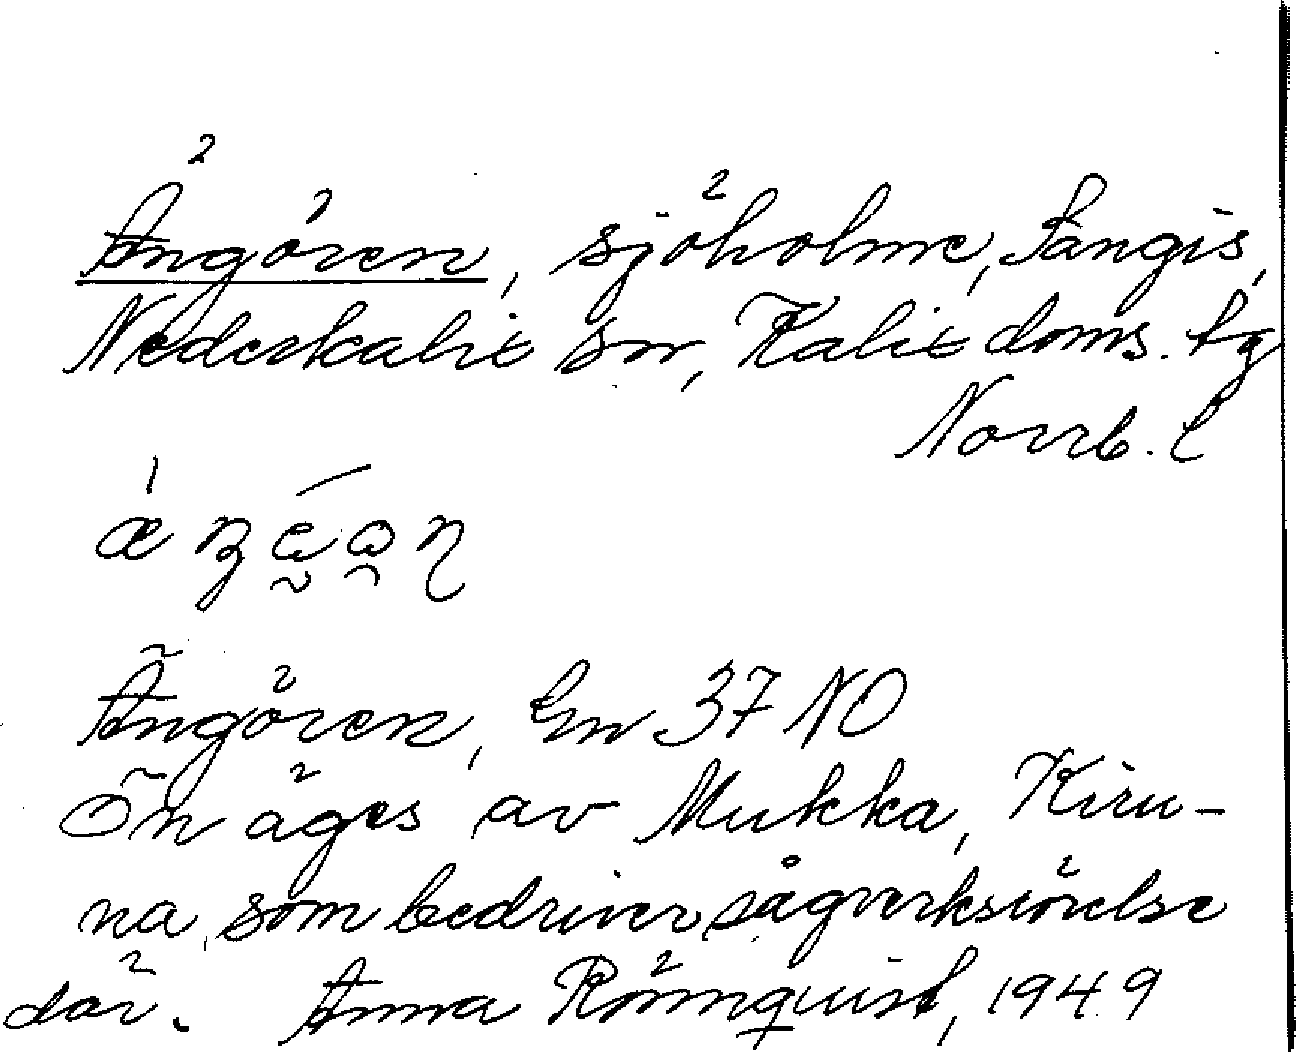 Ängören, sjöholme, Sangis,
Nederkalix sn, Kalix doms. tg
Norrb. l
Ängören, En 37 NO
Ön äges av Mukka, Kiru-
na, som bedriver sågverksrörelse
där. Anna Rönnquist, 1949